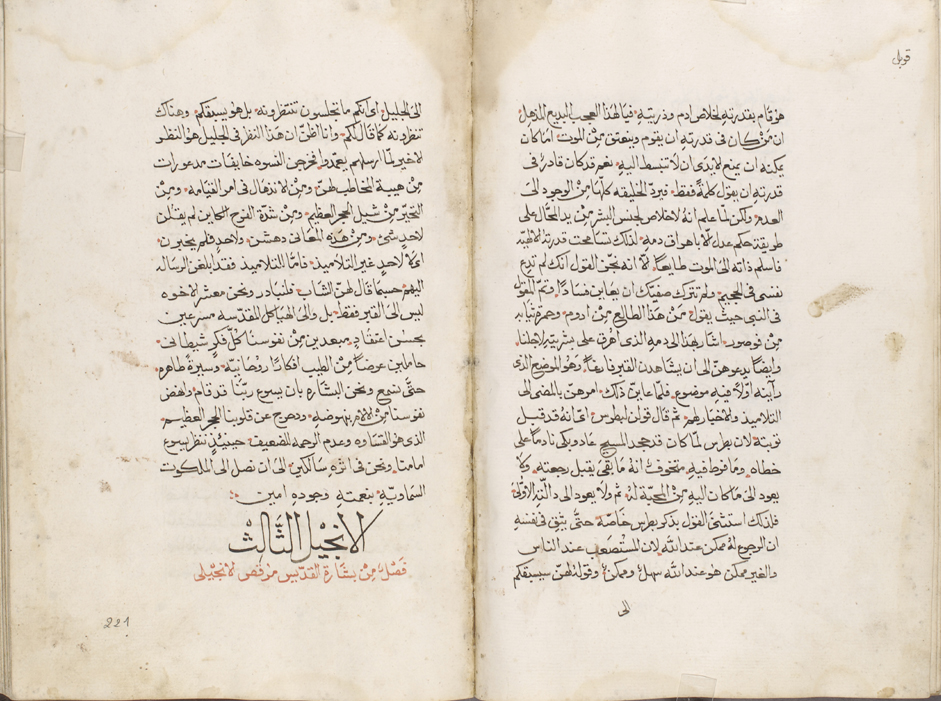 قوبل
هو قام بقدرته لخلاص ادم وذريته فيا لهذا العجب البديع المذهل
ان مَن كان في قدرته ان يقوم وينعتق من الموت اما كان
يمكنه ان يمنع الايدي ان لا تنبسط اليه نعم قد كان قادر في
قدرته ان يقول كلمة فقط فيرد الخليقه كلها من الوجود الى
العدم ولكن لما علم انه لا خلاص لجنس البشر من يد المحال على
طريقة حكم عدل الا باهراق دمه لذلك تسامحت قدرته الالهيه
فاسلم ذاته الى الموت طايعا الا انه نجز القول انك لم تدع
نفسي في الجحيم ولم تترك صفيك ان يعاين فسادًا فتم المقول
في النبي حيث يقول من هذا الطالع من ادوم وحمرة ثيابه
من بوصور اشار بهذا الى دمه الذي اهرق على بشريته لاجلنا
وايضا يدعوهن الى ان يشاهدن القبر فارغا وهو الموضع الذي
رآينه اولا فيه موضوع فلما عاين ذلك امرهن بالمضي الى
التلاميذ والاخبار لهم ثم قال قولن لبطرس اي انه قد قبل
توبته لان بطرس لما كان قد جحد المسيح عاد وبكى نادما على
خطاه وما فرط فيه متخوف انه ما بقى يقبل رجعته ولا
يعود الى ما كان اليه من المحبة له ثم ولا يعود الى الاولى
فلذلك استثنى القول بذكر بطرس خاصة حتى يثق في نفسه
ان الرجوع له ممكن عند الله لان المستصعب عند الناس
والغير ممكن هو عند الله سهل وممكن وقوله لهن سيسبقكم
الى
الى الجليل اي انكم ما تجلسون تنتظرونه بل هو يسبقكم وهناك
تنظرونه كما قال لكم وانا اظن ان هذا النظر في الجليل هو النظر
الاخير لما ارسلهم يعمدوا فخرجن النسوه خايفات مذعورات
من هيبة المخاطب لهن ومن الاندهال في امر القيامه ومن
التحير من شيل الحجر العظيم ومن شدة الفرح الكاين لم يقلن
لاحد شي ومن هذه المعاني دهشن ولاحد فلم يخبرن
اي لا لاحد غير التلاميذ فاما التلاميذ فقد ابلغن الرساله
اليهم حسبما قال لهن الشاب فلنبادر ونحن معشر الاخوه
ليس الى القبر فقط بل والى الهياكل المقدسه مسرعين
بحسن اعتقاد مبعدين من نفوسنا كل فكر شيطاني
حاملين عوضا من الطيب افكارا روحانيه وسيرة طاهره
حتى نسمع ونحن البشاره بان يسوع ربنا قد قام وانهض
نفوسنا من الالام بنهوضه ودحرج عن قلوبنا الحجر العظيم
الذي هو القساوه وعدم الرحمه للضعيف حينيذ ننظر يسوع
امامنا ونحن في اثره سالكين الى ان نصل الى الملكوت
السماويه بنعمته وجوده امين
الانجيل الثالث
فصل من بشارة القديس مرقص الانجيلي
221